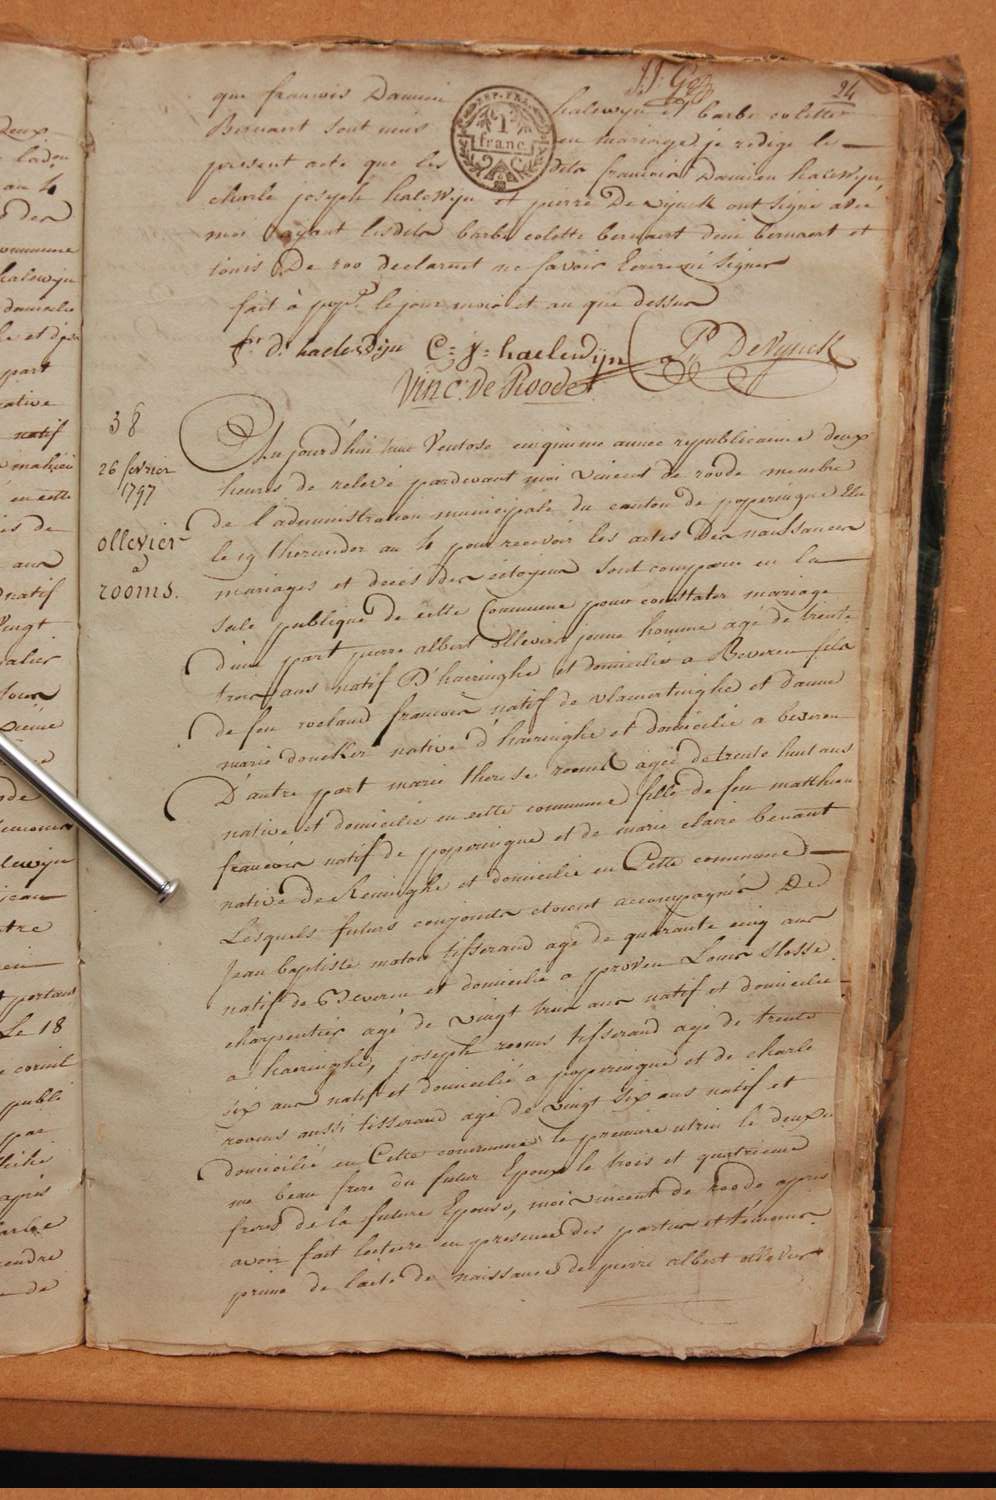 24
que francois Damien halewyn et barbe colette
Bernaert sont unis en mariage je redige le
present acte que les dits francois Damien halewyn
charle joseph halewyn et pierre De vynck ont signé avec
moi ayant lesdits barbe colette bernaert Bernaert et
Louis De roo declaret ne savoir Ecrire ni signer
fait à pop.e le jour mois et an que dessus
fr. d. haelewijn C: J: haelewijn P DeVynck
Vinc. de Roode
38
26 fevrier
1797
ollevier
a
rooms.
1
franc
Au jourd'hui Ventose cinquime année republicaine deux
heures de relevé pardevant moi vincent de roode membre
de l'administration municipale du canton de poperingue Elu
le 19 thermidor an 4 pour recevoir les actes Des naissances
mariages et décés des citoyens sont comparus en la
sale publique de cette Commune pour constater mariage
d'une part pierre albert ollevier jeune homme agé de trente
trois ans natif D'haeringhe et domicilié a Beveren fils
de feu roeland francois natif de vlamertinghe et danne
marie doncker native d'haeringhe et domicilié a beveren
D'autre part marie therese rooms agée de trente huit ans
native et domicilié en cette commune fille de feu matthieu
francois natif de poperingue et de marie claire benaut
native de Reninghe et domicilie en Cette commune
Lesquels futurs conjoints etoient accompagnés De
Jean baptiste maton tisserand agé de quarante cinq ans
natif de Beveren et domicilié a proven Louis Mosse
charpentier agé de vingt trois ans natif et domicilié
a haeringhe, joseph rooms tisserand agé de trente
six ans natif et domicilié a poperingue et de charle
rooms aussi tisserand agé de vingt six ans natif et
domicilié en Cette commune le premiere utrin le deuxie
me beau frere du futur Epoux le trois et quatrieme
freres de la future Epouse, moi vincent de roode apres
avoir fait lecture en presence des parties et temoins
primo de lacte de naissance de pierre albert ollevier